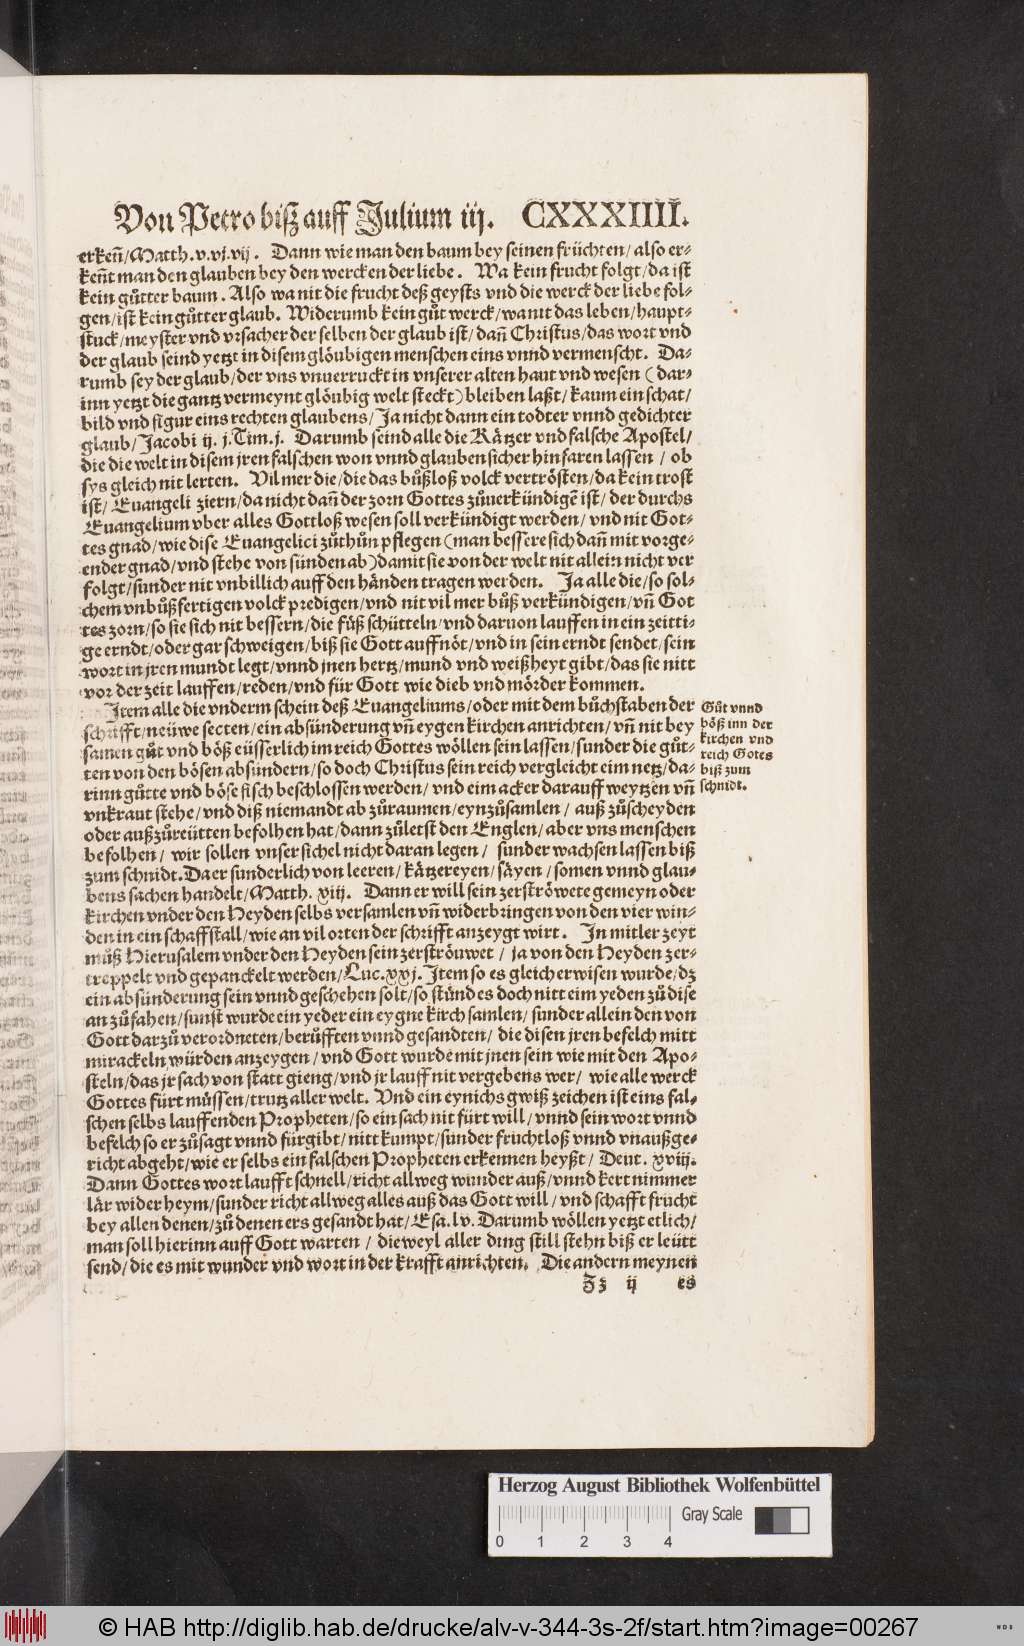 Von Petro biß auff Julium iij. CXXXIIII.
erkeñ/Matth.v.vj.vij. Dann wie man den baum bey seinen früchten/also er-
keñt man den glauben bey den wercken der liebe. Wa kein frucht folgt/da ist
kein gůtter baum. Also wa nit die frucht deß geysts vnd die werck der liebe fol-
gen/ist kein gůtter glaub. Widerumb kein gůt werck/wa nit das leben/haupt-
stuck/meyster vnd vrsacher der selben der glaub ist/dañ Christus/das wort vnd
der glaub seind yetzt in disem glöubigen menschen eins vnnd vermenscht. Da-
rumb sey der glaub/der vns vnuerruckt in vnserer alten haut vnd wesen (dar-
inn yetzt die gantz vermeynt glöubig welt steckt) bleiben laßt/kaum ein schat/
bild vnd figur eins rechten glaubens/Ja nicht dann ein todter vnnd gedichter
glaub/Jacobi ij. j.Tim.j. Darumb seind alle die Kätzer vnd falsche Apostel/
die die welt in disem jren falschen won vnnd glauben sicher hin faren lassen/ob
sys gleich nit lerten. Vil mer die/die das bůßloß volck vertrösten/da kein trost
ist/Euangeli ziern/da nicht dañ der zorn Gottes zůuerkündigē ist/der durchs
Euangelium vber alles Gottloß wesen soll verkündigt werden/vnd nit Got-
tes gnad/wie dise Euangelici zůthůn pflegen (man bessere sich dañ mit vorge-
ender gnad/vnd stehe von sünden ab) damit sie von der welt nit allein nicht ver
folgt/sunder nit vnbillich auff den händen tragen werden. Ja alle die/so sol-
chem vnbůßfertigen volck predigen/vnd nit vil mer bůß verkündigen/vñ Got
tes zorn/so sie sich nit bessern/die füß schütteln/vnd daruon lauffen in ein zeitti-
ge erndt/oder gar schweigen/biß sie Gott auffnöt/vnd in sein erndt sendet/sein
wort in jren mundt legt/vnnd jnen hertz/mund vnd weißheyt gibt/das sie nitt
vor der zeit lauffen/reden/vnd für Gott wie dieb vnd mörder kommen.
Item alle die vnderm schein deß Euangeliums/oder mit dem bůchstaben der
schrifft/neüwe secten/ein absünderung vñ eygen kirchen anrichten/vñ nit bey
samen gůt vnd böß eüsserlich im reich Gottes wöllen sein lassen/sunder die gůt-
ten von den bösen absündern/so doch Christus sein reich vergleicht eim netz/da-
rinn gůtte vnd böse fisch beschlossen werden/vnd eim acker darauff weytzen vñ
vnkraut stehe/vnd diß niemandt ab zůraumen/eynzůsamlen/auß zůscheyden
oder außzůreütten befolhen hat/dann zůletst den Englen/aber vns menschen
befolhen/wir sollen vnser sichel nicht daran legen/sunder wachsen lassen biß
zum schnidt. Da er sunderlich von leeren/kätzereyen/säyen/somen vnnd glau-
bens sachen handelt/Matth. xiij. Dann er will sein zerströwete gemeyn oder
kirchen vnder den Heyden selbs versamlen vñ widerbringen von den vier win-
den in ein schaffstall/wie an vil orten der schrifft anzeygt wirt. In mitler zeyt
můß Hierusalem vnder den Heyden sein zerströuwet/ja von den Heyden zer-
treppelt vnd gepanckelt werden/Luc.xxj. Item so es gleich erwisen wurde/dz
ein absünderung sein vnnd geschehen solt/so stünd es doch nitt eim yeden zů dise
an zůfahen/sunst wurde ein yeder ein eygne kirch samlen/sunder allein den von
Gott darzů verordneten/berůfften vnnd gesandten/die disen jren befelch mitt
mirackeln würden anzeygen/vnd Gott wurde mit jnen sein wie mit den Apo-
steln/das jr sach von statt gieng/vnd jr lauff nit vergebens wer/wie alle werck
Gottes fürt müssen/trutz aller welt. Vnd ein eynichs gwiß zeichen ist eins fal-
schen selbs lauffenden Propheten/so ein sach nit fürt will/vnnd sein wort vnnd
befelch so er zůsagt vnnd fürgibt/nitt kumpt/sunder fruchtloß vnnd vnaußge-
richt abgeht/wie er selbs ein falschen Propheten erkennen heyßt/Deut. xviij.
Dann Gottes wort laufft schnell/richt allweg wunder auß/vnnd kert nimmer
lär wider heym/sunder richt allweg alles auß das Gott will/vnd schafft frucht
bey allen denen/zů denen ers gesandt hat/Esa.lv. Darumb wöllen yetzt etlich/
man soll hierinn auff Gott warten/dieweyl aller ding still stehn biß er leütt
send/die es mit wunder vnd wort in der krafft anrichten. Die andern meynen
Zz ij es
Gůt vnnd
böß inn der
kirchen vnd
reich Gotes
biß zum
schnidt.
Herzog August Bibliothek Wolfenbüttel
0 1 2 3 4
Gray Scale
© HAB http://diglib.hab.de/drucke/alv-v-344-3s-2f/start.htm?image=00267